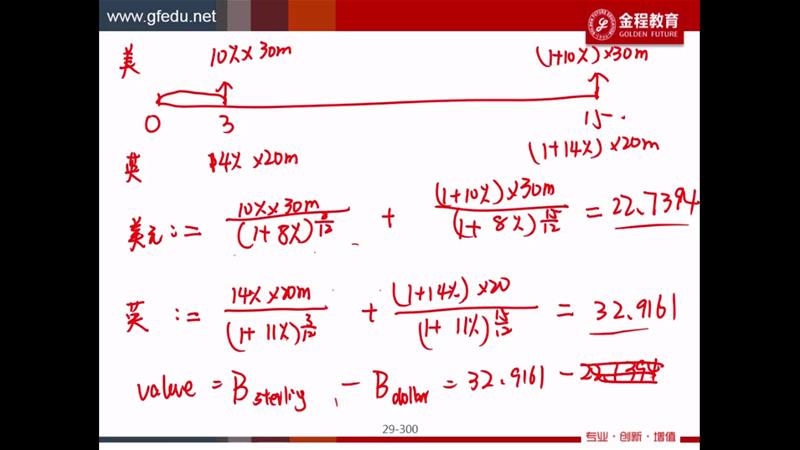 www.gfedu.net
金程教育
GOLDEN FUTURE
美 10%×30m (1+10%)×30m
0 3 15.
英 14%×20m (1+14%)×20m
美元:= 10%×30m / (1+8%)^3/12 + (1+10%)×30m / (1+8%)^15/12 = 22.7394
英:= 14%×20m / (1+11%)^3/12 + (1+14%)×20 / (1+11%)^15/12 = 32.9161
value = B sterling - B dollar = 32.9161 -
29-300
专业·创新·增值